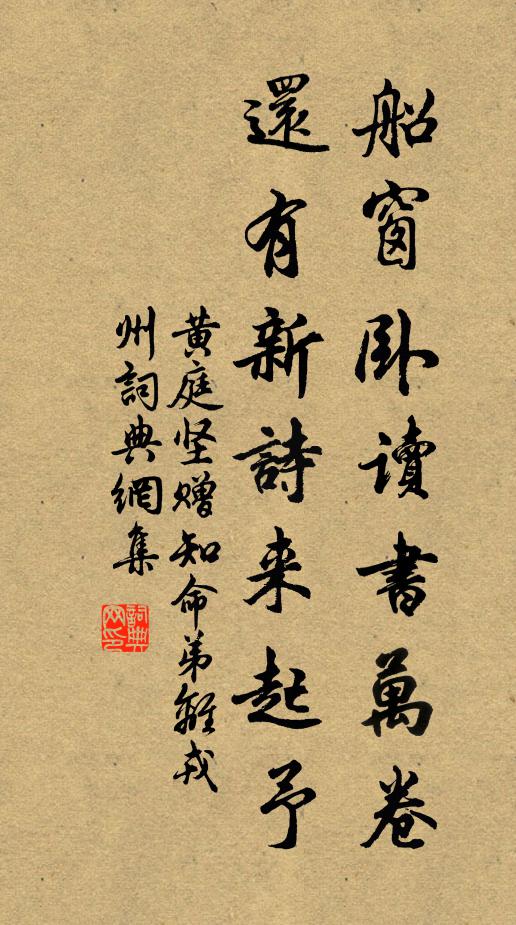 船窗卧讀書萬卷
還有新詩来起予
黄庭坚赠知命弟離戎
州詞典網集
詞典网印